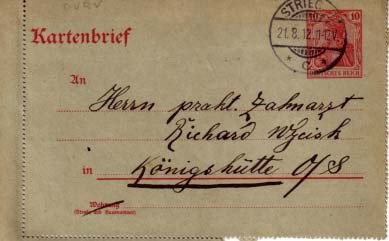 Kartenbrief
STRIEG
21.8.12.11-12V.
* c *
10
DEUTSCHES REICH
An
Herrn prakt. Zahnarzt
Richard
in Königshütte O/S
Wohnung
(Straße und Hausnummer)